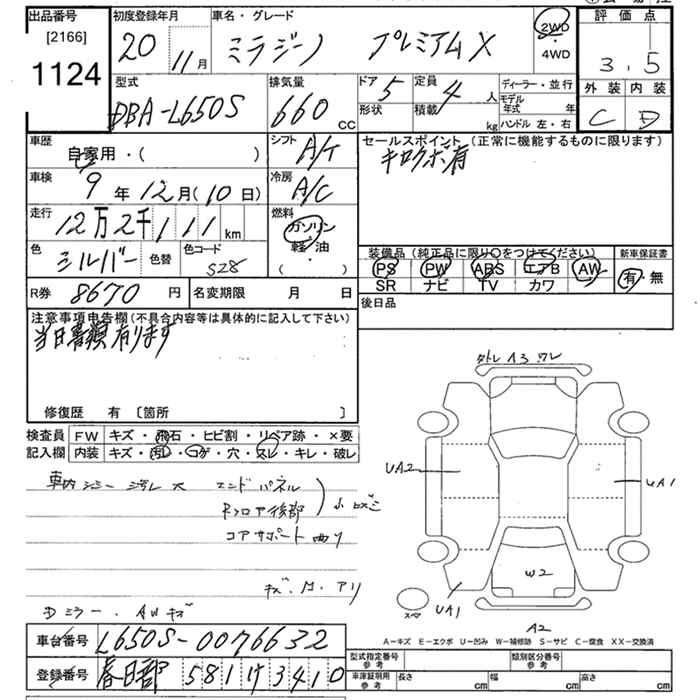 出品番号
[2166]
1124
初度登録年月
20 11月
車名・グレード
ミラジーノ プレミアムX
2WD
・
4WD
評価点
3.5
外装 内装
C D
型式
DBA-L650S
排気量
660 CC
ドア
5
定員
4人
形状
積載 kg
ディーラー・並行
モデル年式 年
ハンドル 左・右
車歴
自家用・( )
シフト
A/T
セールスポイント (正常に機能するものに限ります)
キロクボ有
車検
9年12月(10日)
冷房
A/C
走行
12万2千111km
燃料
ガソリン
軽・油
( )
色
シルバー
色替
色コード
S28
装備品 (純正品に限り○をつけてください)
PS PW ABS エアB AW
SR ナビ TV カワ
新車保証書
有・無
R券 8670円
名変期限 月 日
後日品
注意事項申告欄(不具合内容等は具体的に記入して下さい)
当日書類有ります
修復歴 有 〔箇所 〕
検査員
記入欄
FW キズ・飛石・ヒビ割・リペア跡・×要
内装 キズ・汚レ・コゲ・穴・スレ・キレ・破レ
車内シミー汚レ大
エンドパネル
Rフロア後部
コアサポート曲り
キズ.H.アリ
Dミラー.AWキズ
タトレ A3 ワレ
UA2
UA1
W2
UA1
スペア
A2
A-キズ E-エクボ U-凹み W-補修跡 S-サビ C-腐食 XX-交換済
車台番号 L650S-0076632
登録番号 春日部 581 け 3410
型式指定番号
参考
類別区分番号
参考
車庫証明用
参考
長さ cm
幅 cm
高さ cm